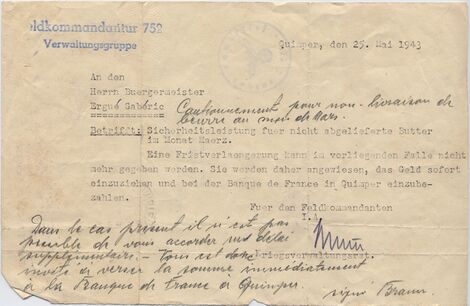 eldkommandantur 752
Verwaltungsgruppe
Quimper, den 25. Mai 1943
An den
Herrn Buergermeister
Ergué Gabéric
Cautionnement pour non-livraison de
beurre au mois de Mars.
Betrifft: Sicherheitsleistung fuer nicht abgelieferte Butter
im Monat Maerz.
Eine Fristverlaengerung kann im vorliegenden Falle nicht
mehr gegeben werden. Sie werden daher angewiesen, das Geld sofort
einzuziehen und bei der Banque de France in Quimper einzube-
zahlen.
Fuer den Feldkommandanten
I.
Kriegsverwaltungsrat.
Dans le cas présent il n'est pas
possible de vous accorder un délai
supplémentaire.
de verser la somme immédiatement
à la Banque de France à Quimper.
signé